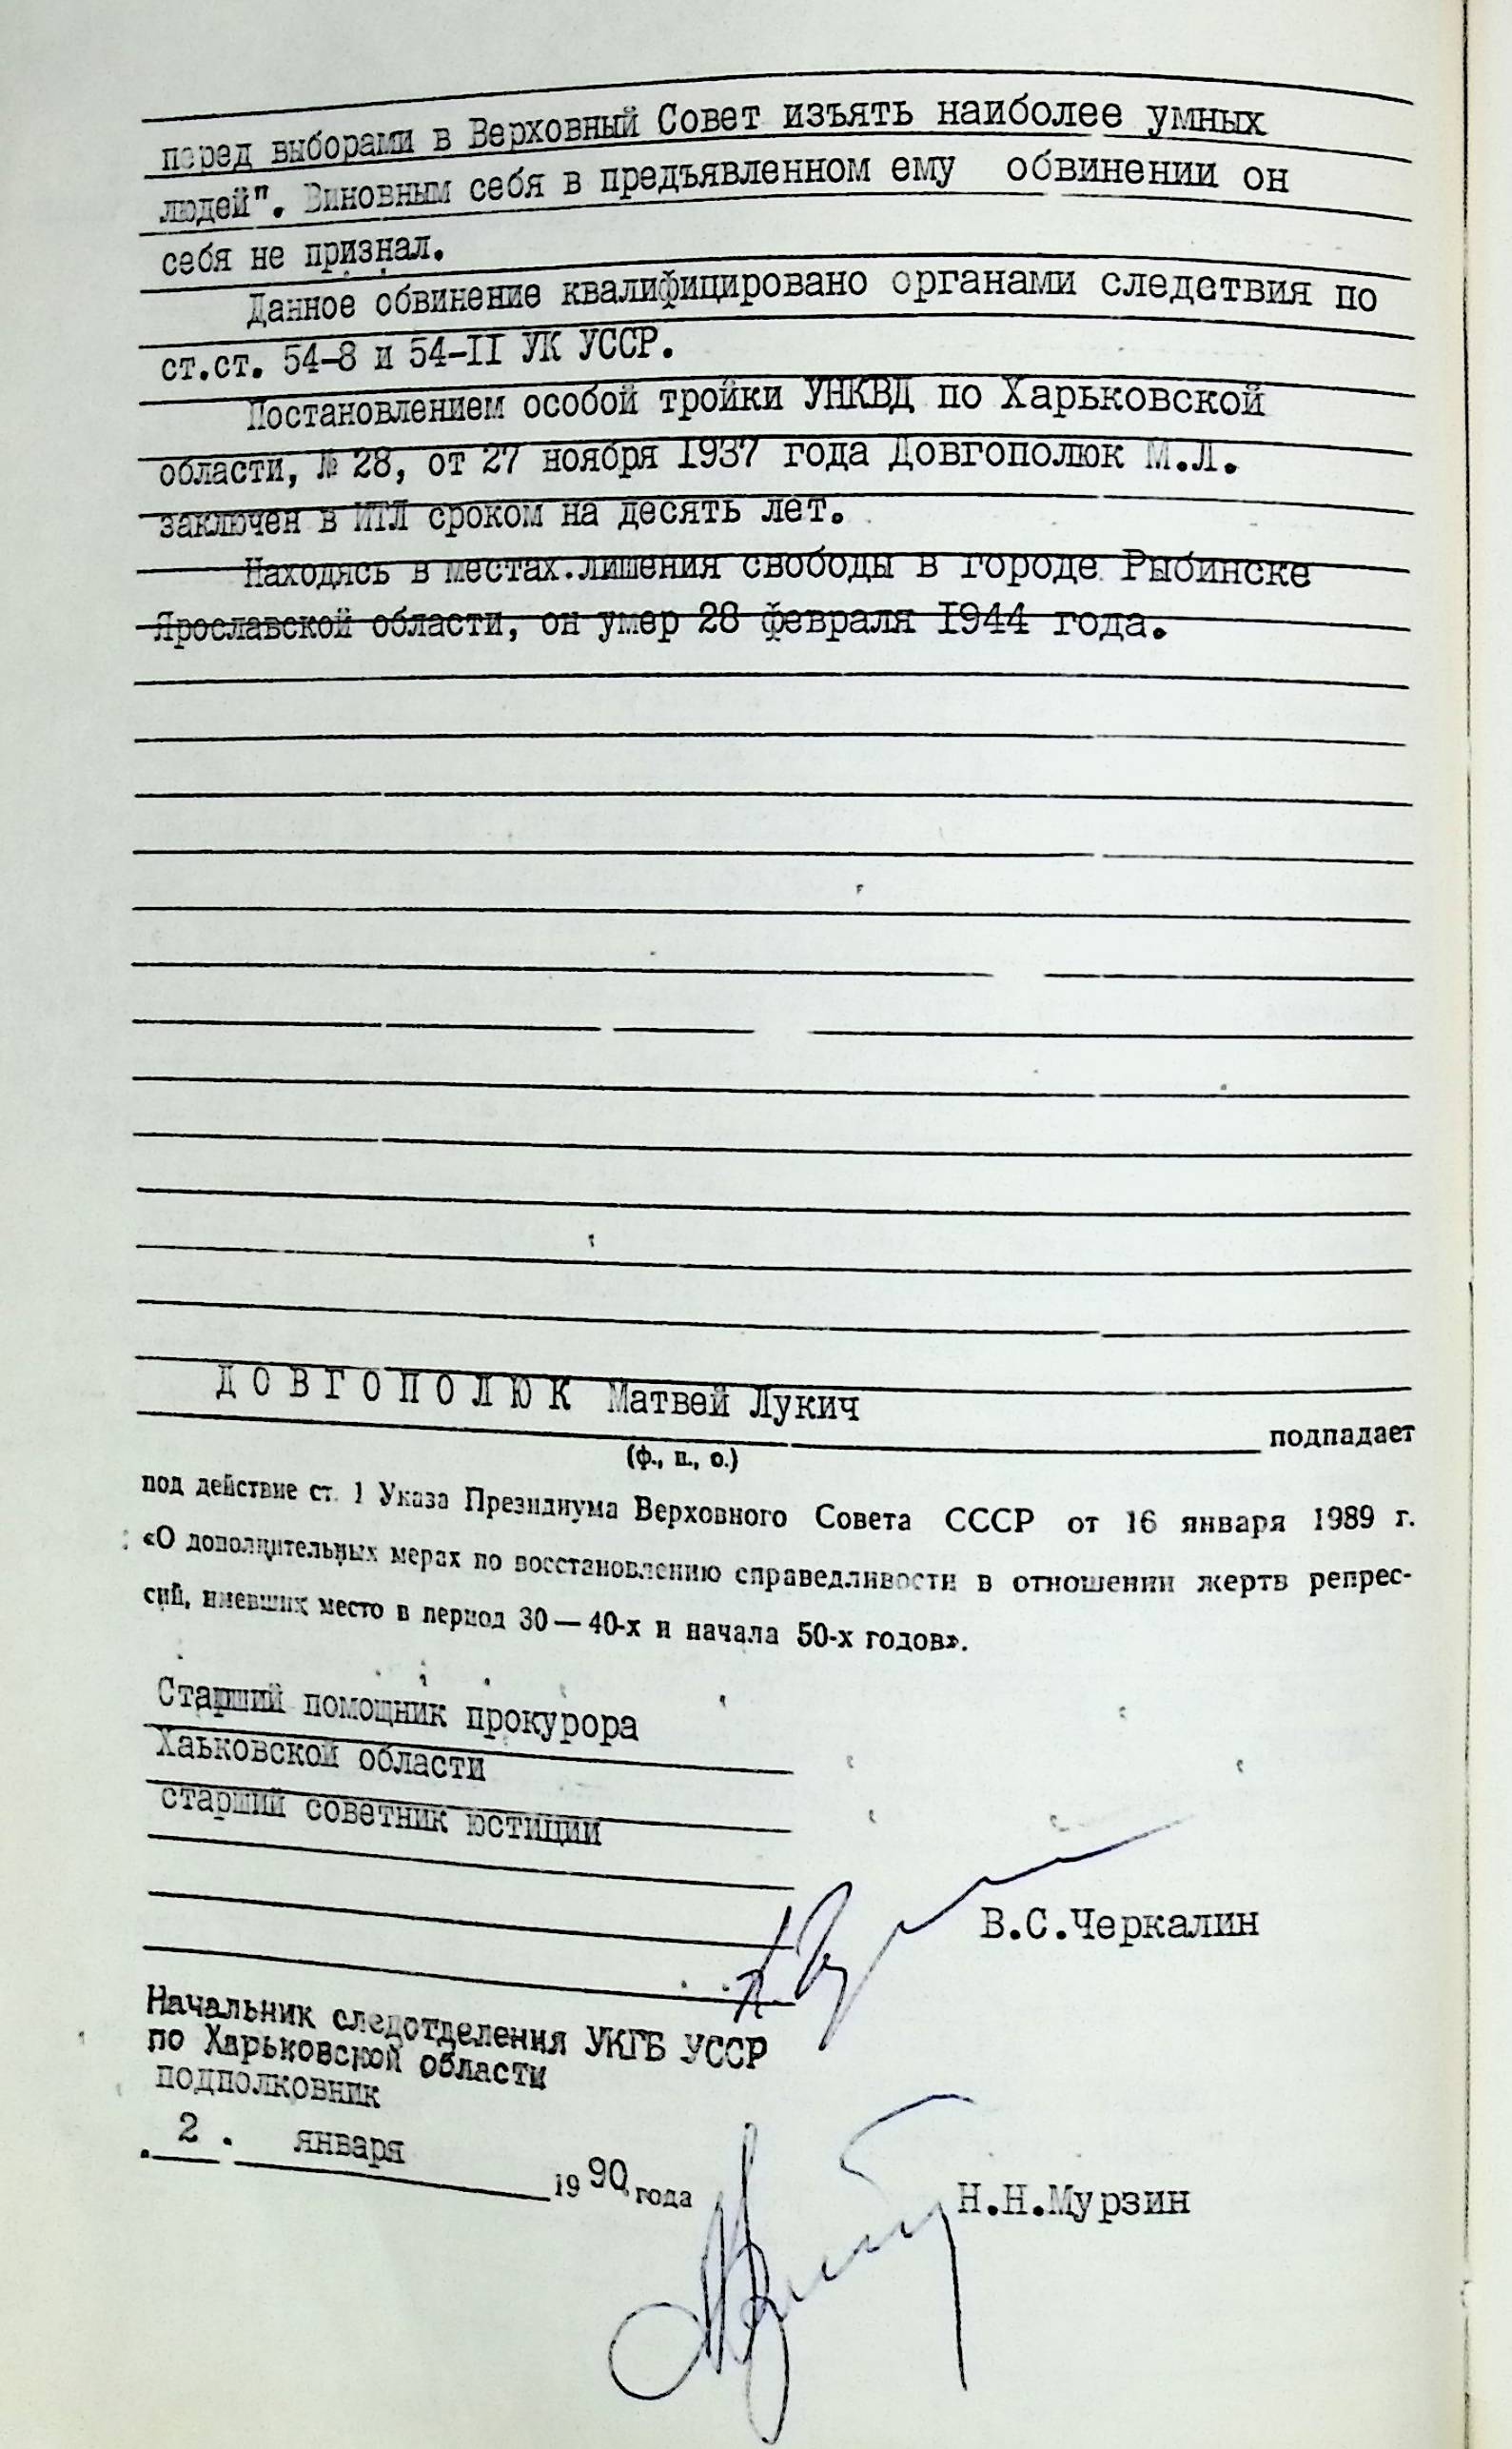 перед выборами в Верховный Совет изъять наиболее умных
людей". Виновным себя в предъявленном ему обвинении он
себя не признал.
Данное обвинение квалифицировано органами следствия по
ст.ст. 54-8 и 54-II УК УССР.
Постановлением особой тройки УНКВД по Харьковской
области, № 28, от 27 ноября 1937 года Довгополюк М.Л.
заключен в ИТЛ сроком на десять лет.
Находясь в местах.лишения свободы в городе Рыбинске
Ярославской области, он умер 28 февраля 1944 года.
ДОВГОПОЛЮК Матвей Лукич
подпадает
(ф., и., о.)
под действие ст. 1 Указа Президиума Верховного Совета СССР от 16 января 1989 г.
«О дополнительных мерах по восстановлению справедливости в отношении жертв репрес-
сий, имевших место в период 30—40-х и начала 50-х годов».
Старший помощник прокурора
Хаьковской области
старший советник юстиции
В.С.Черкалин
Начальник следотделения УКГБ УССР
по Харьковской области
подполковник
2. января 1990 года
Н.Н.Мурзин